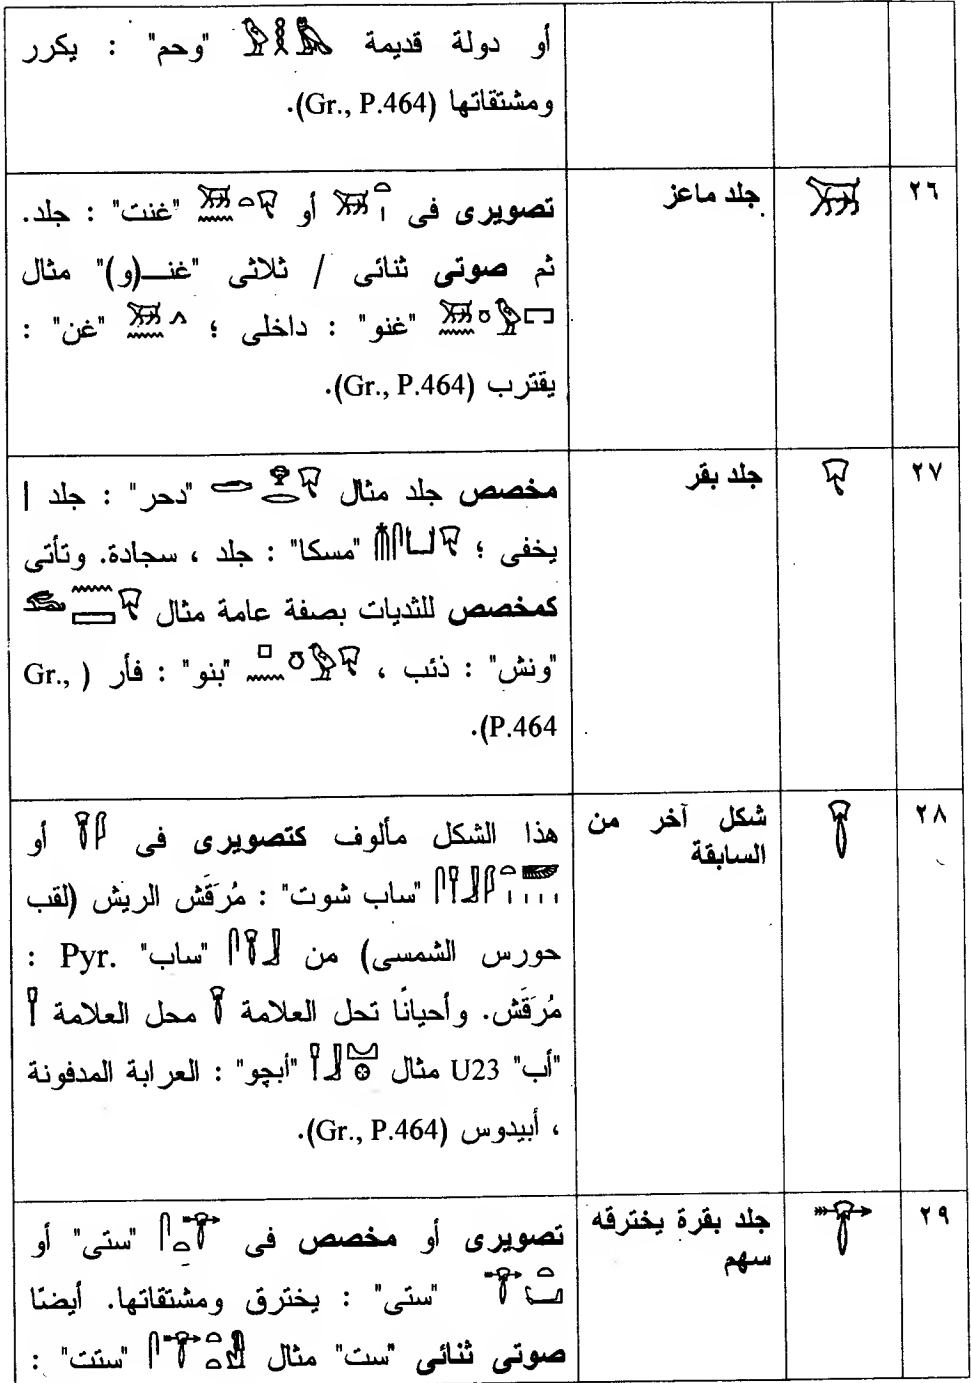 أو دولة قديمة "وحم" : يكرر
ومشتقاتها (Gr., P.464).
٢٦
جلد ماعز
تصويرى فى أو "غنت" : جلد.
ثم صوتى ثنائى / ثلاثى "غنــ(و)" مثال
"غنو" : داخلى ؛ "غن" :
يقترب (Gr., P.464).
٢٧
جلد بقر
مخصص جلد مثال "دحر" : جلد |
يخفى ؛ "مسكا" : جلد ، سجادة. وتأتى
كمخصص للثديات بصفة عامة مثال
"ونش" : ذئب ، "بنو" : فأر (Gr.,
P.464).
٢٨
شكل آخر من
السابقة
هذا الشكل مألوف كتصويرى فى أو
"ساب شوت" : مُرَقَش الريش (لقب
حورس الشمسى) من "ساب" Pyr. :
مُرَقَش. وأحيانًا تحل العلامة محل العلامة
"أب" U23 مثال "أبچو" : العرابة المدفونة
، أبيدوس (Gr., P.464).
٢٩
جلد بقرة يخترقه
سهم
تصويرى أو مخصص فى "ستى" أو
"ستى" : يخترق ومشتقاتها. أيضًا
صوتى ثنائى "ست" مثال "ستت" :